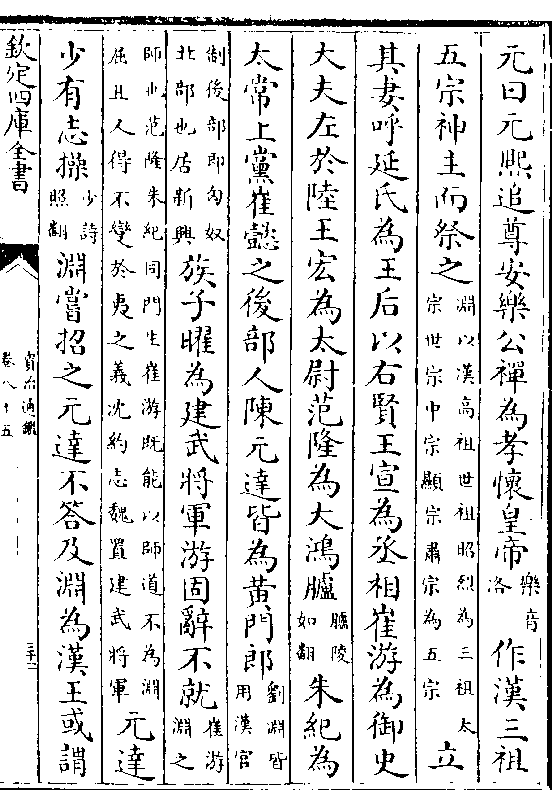 元曰元熈追尊安樂公禪為孝懷皇帝樂音洛作漢三祖
五宗神主而祭之淵以漢高祖世祖昭烈為三祖太宗世宗中宗顯宗肅宗為五宗立
其妻呼延氏為王后以右賢王宣為丞相崔游為御史
大夫左於陸王宏為太尉范隆為大鴻臚臚陵如翻朱紀為
太常上黨崔懿之後部人陳元達皆為黄門郎劉淵皆用漢官
制後部即匈奴北部也居新興族子曜為建武將軍游固辭不就崔游淵之
師也范隆朱紀同門生崔游既能以師道不為淵屈且人得不變於夷之義沈約志魏置建武將軍元達
少有志操少詩照翻淵嘗招之元達不答及淵為漢王或謂
欽定四庫全書
資治通鑑
卷八十五
三十二